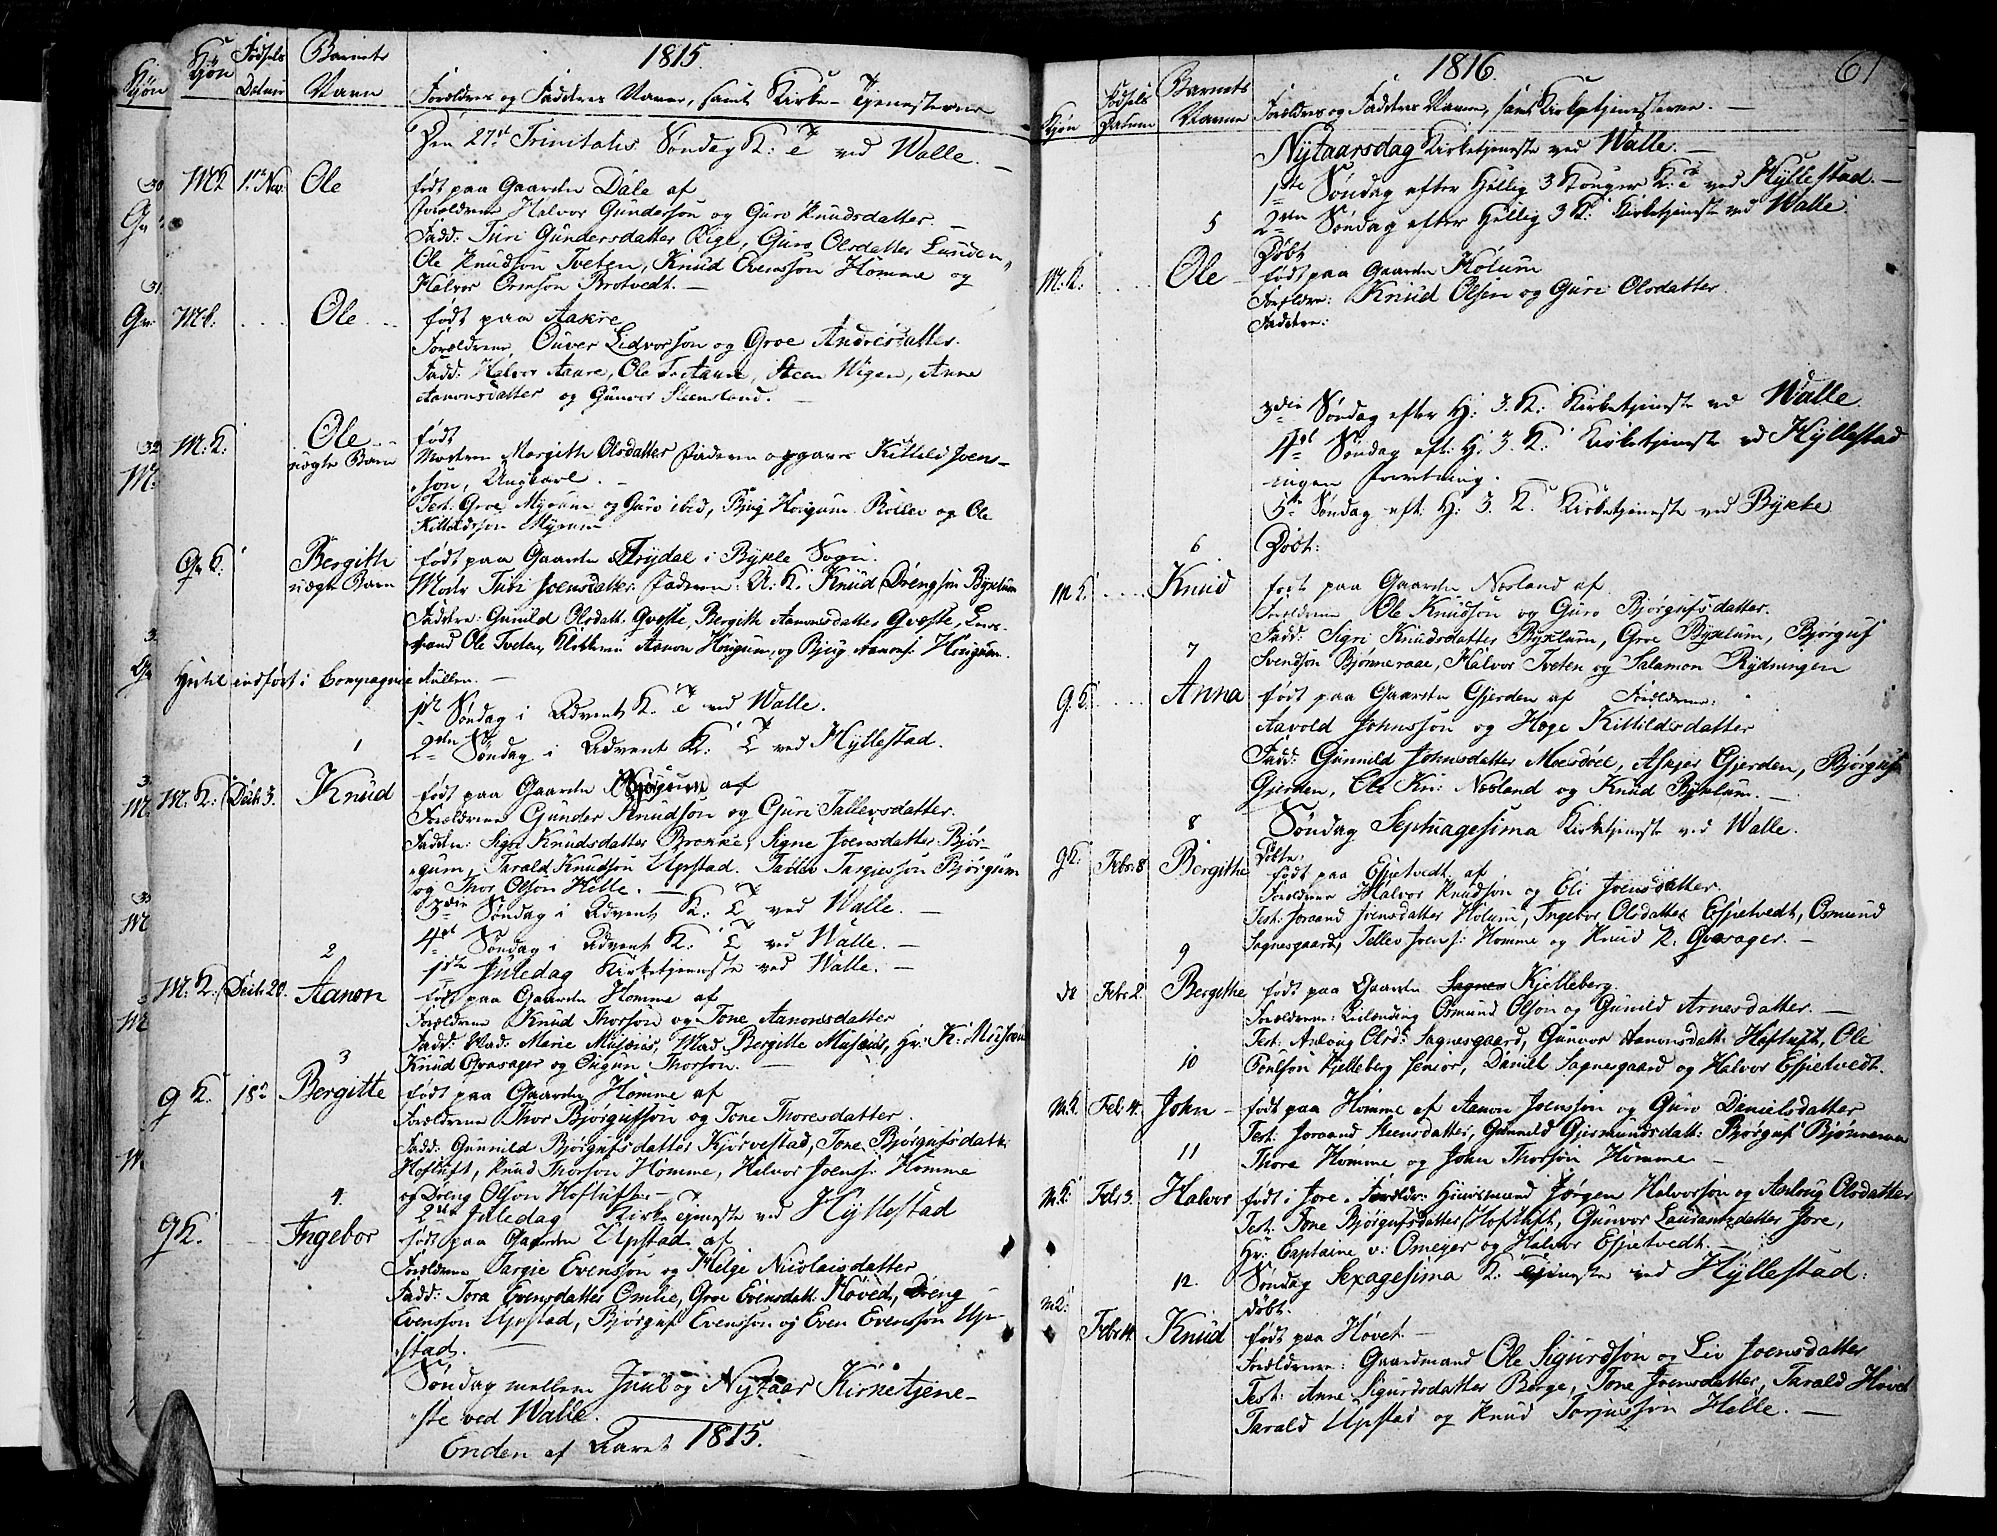 Kjøn
Fødsels
Datum
Barnets
Navn
1815.
Forældres og Faddres Navne, samt Kirke-Tjenesterne
Den 27de Trinitatis Søndag K: T ved Walle. —
MK 1ste Nov: Ole
født paa Gaarden Dale af
Forældrene Halvor Gunderson og Guro Knudsdatter.
Fadd: Turi Gundersdatter Rige, Guro Olsdatter Lunden,
Ole Knudson Tveten, Knud Evensson Homme og
Halvor Ormson Brotvedt. —
MK: .... Ole ....
født paa Aakre
Forældrene Ouver Lidvorson og Groe Andersdatter.
Fadd: Halvor Aaare, Ole Aaare, Steen Wigen, Anne
Aanonsdatter og Gunvor Steensland. —
M: K: Ole
uægte Barn
født
Modren Margith Olsdatter Faderen opgaves Kittild Joens-
søn, Ungkarl. —
Test: Groe Myrum og Guro ibid, Bjug Horgum og Ole
Kittildsson Myrum
G: K: Bergith
uægte Barn
født paa Gaarden Trydal i Bykle Sogn
Moder Turi Joensdatter Faderen: U: K: Knud Drengson Byklum
Faddre: Gunild Olsdatt: Qveste, Bergith Aanonsdatter Qveste, Lens-
mand Ole Tveten, Aanon Horgum, og Bjug Aanons: Horgum.
Hertil indført i Compagnie Rullen. —
1ste Søndag i Advent K: T ved Walle.
2den Søndag i Advent K: T ved Hyllestad.
1
M: K: Decb: 3. Knud
født paa Gaarden Bjørgum af
Forældrene Gunder Knudson og Guri Tallevsdatter.
Faddre: Sigri Knudsdatter Brokke, Signe Joensdatter Bjør-
gum, Tarald Knudson Upstad. Tallev Targiesson Bjørgum
og Thor Olson Helle. —
3die Søndag i Advent K: T ved Walle. —
4de Søndag i Advent K: T ved Walle. —
1ste Juledag Kirketjeneste ved Walle. —
2
M: K: Decb: 20. Aanon
født paa Gaarden Homme af
Forældrene Knud Thorson og Tone Aanonsdatter
Fadd: Mad: Marie Musæus, Mad Bergitte Musæus, Hr: K: Musæus
Knud Qvasager og Ougun Thorson. —
3
g K: 18de Bergitte
født paa Gaarden Homme af
Forældrene Thor Bjorgufsson og Tone Thoresdatter.
Fadd: Gunnild Bjørgufsdatter Kjørvestad, Tone Bjørgufsdatt:
Hoftuft, Knud Thorson Homme, Halvor Joens: Homme
og Dreng Olson Hoftuft —
4.
gK. Ingebor
2den Juledag Kirke Tjeneste ved Hyllestad
født paa Gaarden Upstad af
Forældrene Targie Evensson og Helge Nicolaisdatter
Fadd: Tora Evensdatter Omlie, Groe Evensdatt: Høved, Dreng
Evensson Upstad, Bjørguf Evensson og Even Evensson Up-
stad. —
Søndag mellem Juul og Nytaar Kirketjene-
ste ved Walle.
Enden af Aaret 1815.
1816.
61
Kjøn
Fødsels
Datum
Barnets
Navne
Forældres og Faddres Navne, samt Kirketjenesterne. —
Nytaarsdag Kirketjeneste ved Walle. —
1ste Søndag efter Hellig 3 Konger K: T ved Hyllestad. —
2den Søndag efter Hellig 3 K: Kirketjeneste ved Walle.
5
Døbt
M: K: .... Ole
født paa Gaarden Holum
Forældre: Knud Olsen og Guri Olsdatter.
Faddre:
3die Søndag efter H: 3. K: Kirketjeneste ved Walle.
4de Søndag eft: H: 3. K: Kirketjeneste ved Hyllestad
ingen Forretning.
5te Søndag eft: H: 3. K. Kirketjeneste ved Bykle
6
Døbt:
M K: .... Knud
født paa Gaarden Nesland af
Forældrene Ole Knudson og Guro Bjørgufsdatter.
Fadd: Sigri Knudsdatter Byklum, Groe Byklum, Bjørguf
Svendson Bjønneraae, Halvor Tveten og Salamon Rydningen
7
g. K: .... Anna
født paa Gaarden Gjerden af Forældrene:
Aavold Johnsson og Høge Kittildsdatter
Fadd: Gunnild Johnsdatter Moesdøel, Askjer Gjerden, Bjørguf
Gjerden, Ole Kn: Nesland og Knud Byklum. —
Søndag Septuagesima Kirketjeneste ved Walle.
8
Døbte:
gK: Febr: 8 Bergithe
født paa Espetvedt af
Forældrene Halvor Knudson og Eli Joensdatter.
Test: Joraand Joensdatter Holum, Ingebor Olsdatter Espetvedt, Osmund
Sagnesgaard, Tellev Joens: Homme og Knud K. Qvasager. —
9
do Febr: 2. Bergithe
født paa Gaarden Sagnes Kjelleberg.
Forældrene: Leilending Osmund Olson og Gunild Arnesdatter. —
Test: Asloug Olsd: Sagnesgaard, Gunvor Aanonsdatt: Hoftuft, Ole
Poulson Kjelleberg senior, Daniel Sagnesgaard og Halvor Espetvedt.
10
M.K. Feb: 4. John
født paa Homme af Aanon Joensson og Guro Danielsdatter
Test: Joraand Steensdatter, Gunnild Gjermundsdatt: Bjørguf Bjønneraa
Thora Homme og John Thorson Homme —
11
M K: Febr: 3. Halvor
født i Jore. Forældr: Huusmand Jørgen Halvorsson og Aasloug Olsdatter
Test. Tone Bjørgufsdatter Hoftuft, Gunvor Laurantzdatter Jore,
Hr: Captaine v: Omeyer og Halvor Espetvedt. —
Søndag Sexagesima K: Tjeneste ved Hyllestad:
12.
døbt.
MK: Febr: 4. Knud
født paa Hovet —
Forældrene: Gaardmand Ole Sigurdson og Liv Joensdatter
Test: Anne Sigurdsdatter Berge, Tone Joensdatter, Tarald Hovet
Tarald Upstad og Knud Torjusson Helle. —